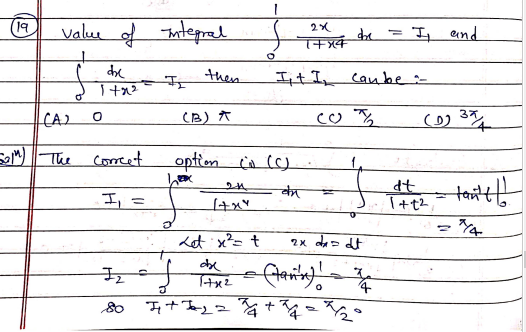 (19) Value of Integral ∫₀¹ 2x/(1+x4) dx = I₁ and
∫₀¹ dx/(1+x²) = I₂ then I₁ + I₂ can be :-
(A) 0 (B) π (C) π/2 (D) 3π/4
Solⁿ) The corrcet option is (C).
I₁ = ∫₀¹ 2x/(1+x⁴) dx = ∫₀¹ dt/(1+t²) = tan⁻¹t |₀¹
= π/4
Let x² = t 2x dx = dt
I₂ = ∫₀¹ dx/(1+x²) = (tan⁻¹x)₀¹ = π/4
so I₁ + I₂ = π/4 + π/4 = π/2.